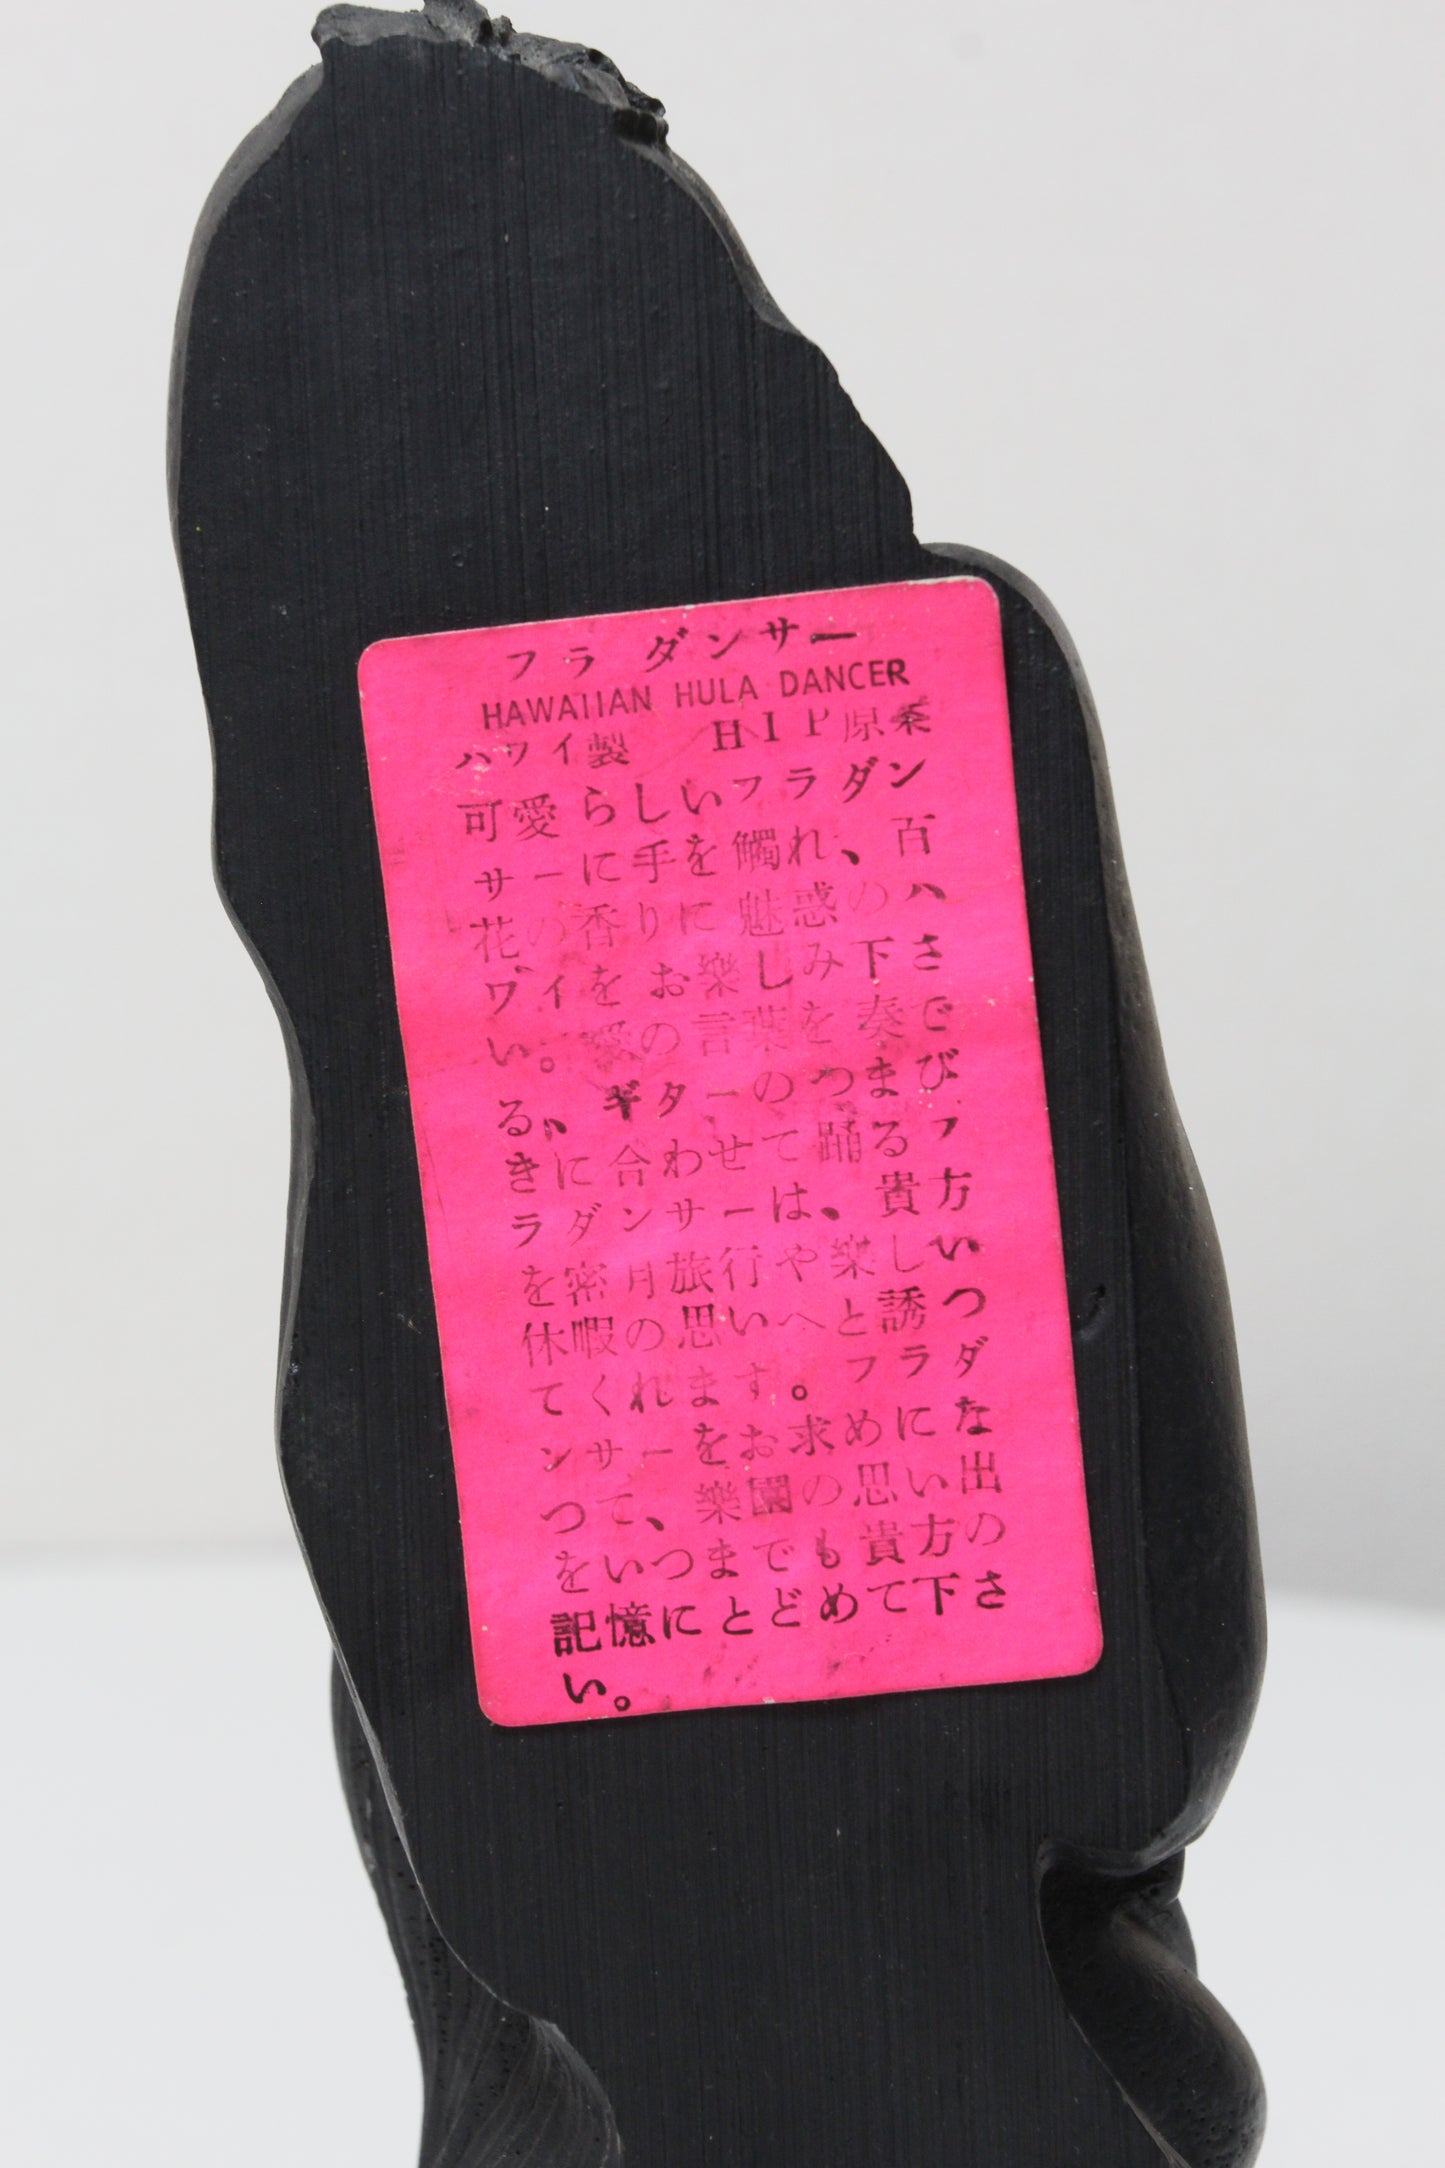 フラ ダンサー
HAWAIIAN HULA DANCER
ハワイ製 HIP原案
可愛らしいフラダン
サーに手を觸れ、百
花の香りに魅惑のハ
ワイをお樂しみ下さ
い。愛の言葉を奏で
る、ギターのつまび
きに合わせて踊るフ
ラダンサーは、貴方
を密月旅行や楽しい
休暇の思いへと誘つ
てくれます。フラダ
ンサーをお求めにな
つて、樂園の思い出
をいつまでも貴方の
記憶にとどめて下さ
い。